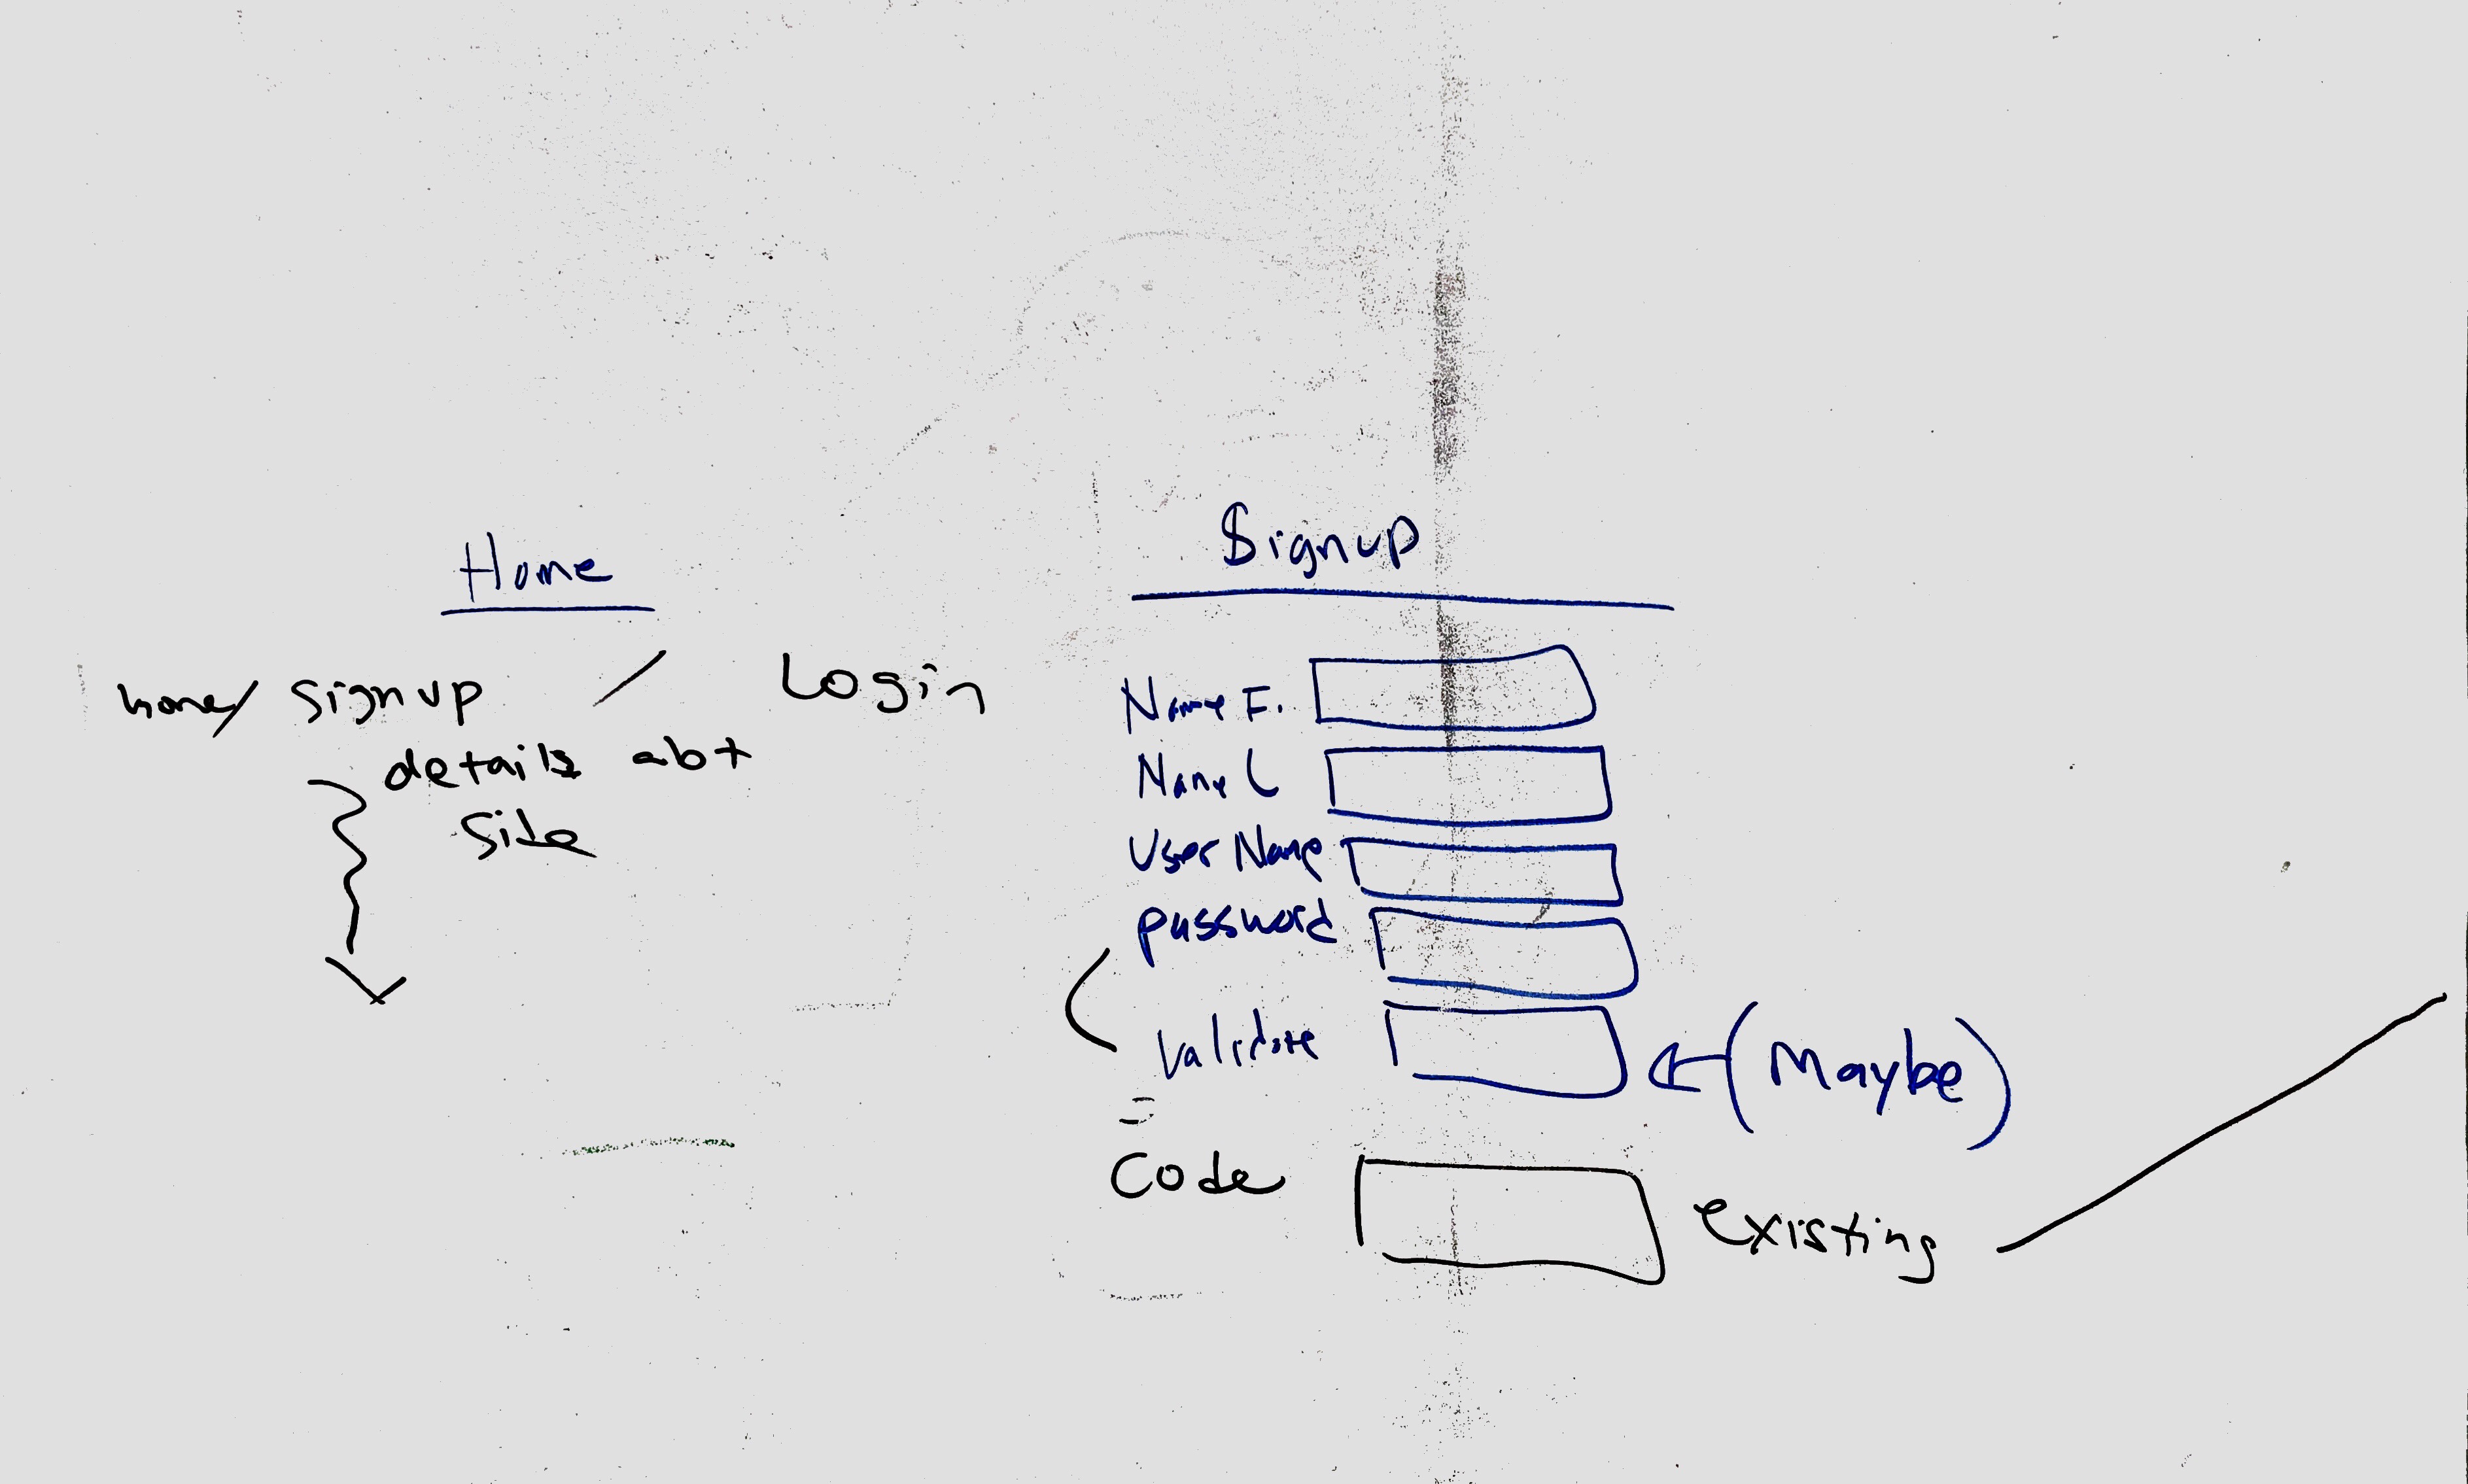 Home
home/ signup / Login
details abt
site
Signup
Name F.
Name L
User Name
password
Validate
(Maybe)
Code
existing